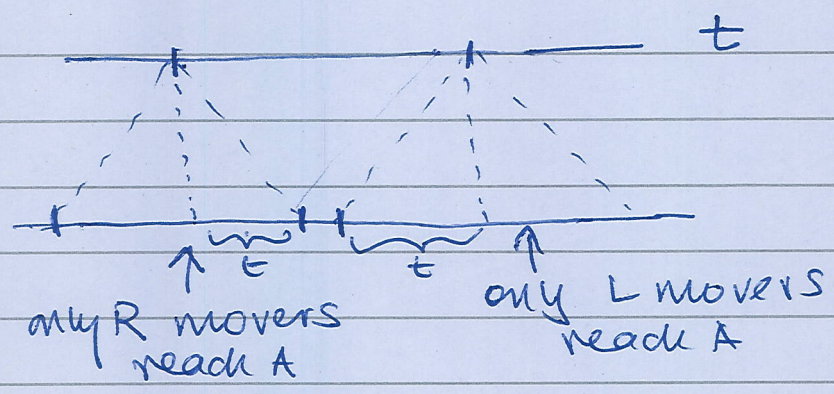 t
t
t
only R movers
reach A
only L movers
reach A